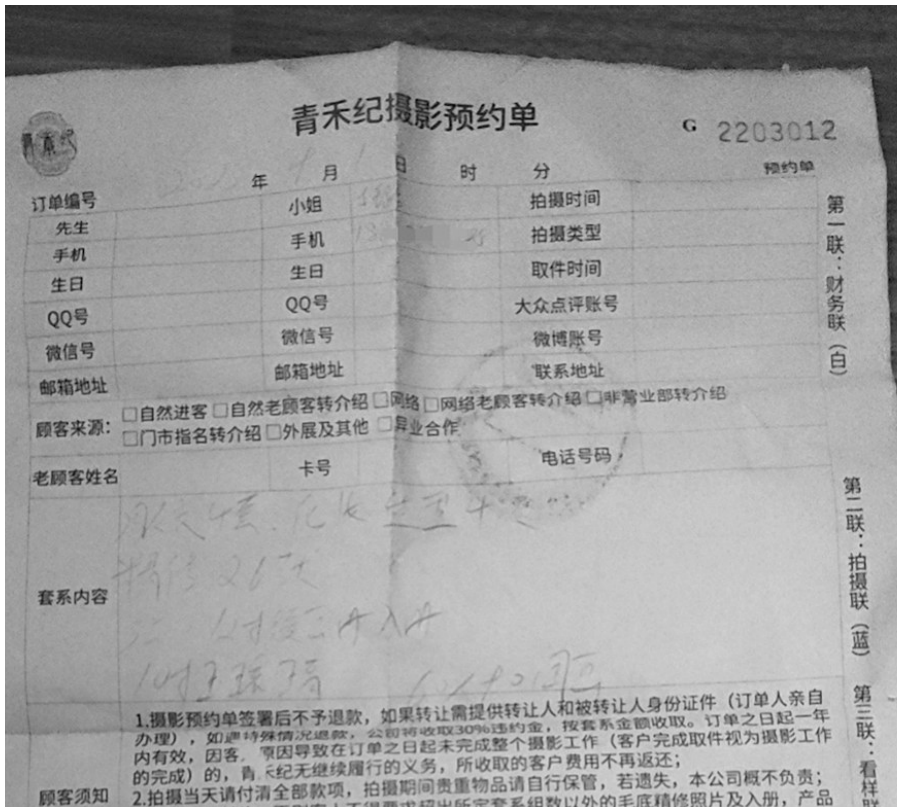 青禾纪摄影预约单
G 2203012
预约单
年 9 月 1 日 时 分
订单编号
先生 小姐 拍摄时间
手机 手机 拍摄类型
生日 生日 取件时间
QQ号 QQ号 大众点评账号
微信号 微信号 微博账号
邮箱地址 邮箱地址 联系地址
顾客来源: □自然进客 □自然老顾客转介绍 □网络 □网络老顾客转介绍 □非营业部转介绍
□门市指名转介绍 □外展及其他 □异业合作
老顾客姓名 卡号 电话号码
套系内容
精修26张
顾客须知
1.摄影预约单签署后不予退款，如果转让需提供转让人和被转让人身份证件（订单人亲自
办理），如遇特殊情况退款，公司将收取30%违约金，按套系金额收取。订单之日起一年
内有效，因客 原因导致在订单之日起未完成整个摄影工作（客户完成取件视为摄影工作
的完成）的，青禾纪无继续履行的义务，所收取的客户费用不再返还；
2.拍摄当天请付清全部款项，拍摄期间贵重物品请自行保管，若遗失，本公司概不负责；
第一联：财务联（白）
第二联：拍摄联（蓝）
第三联：看样联